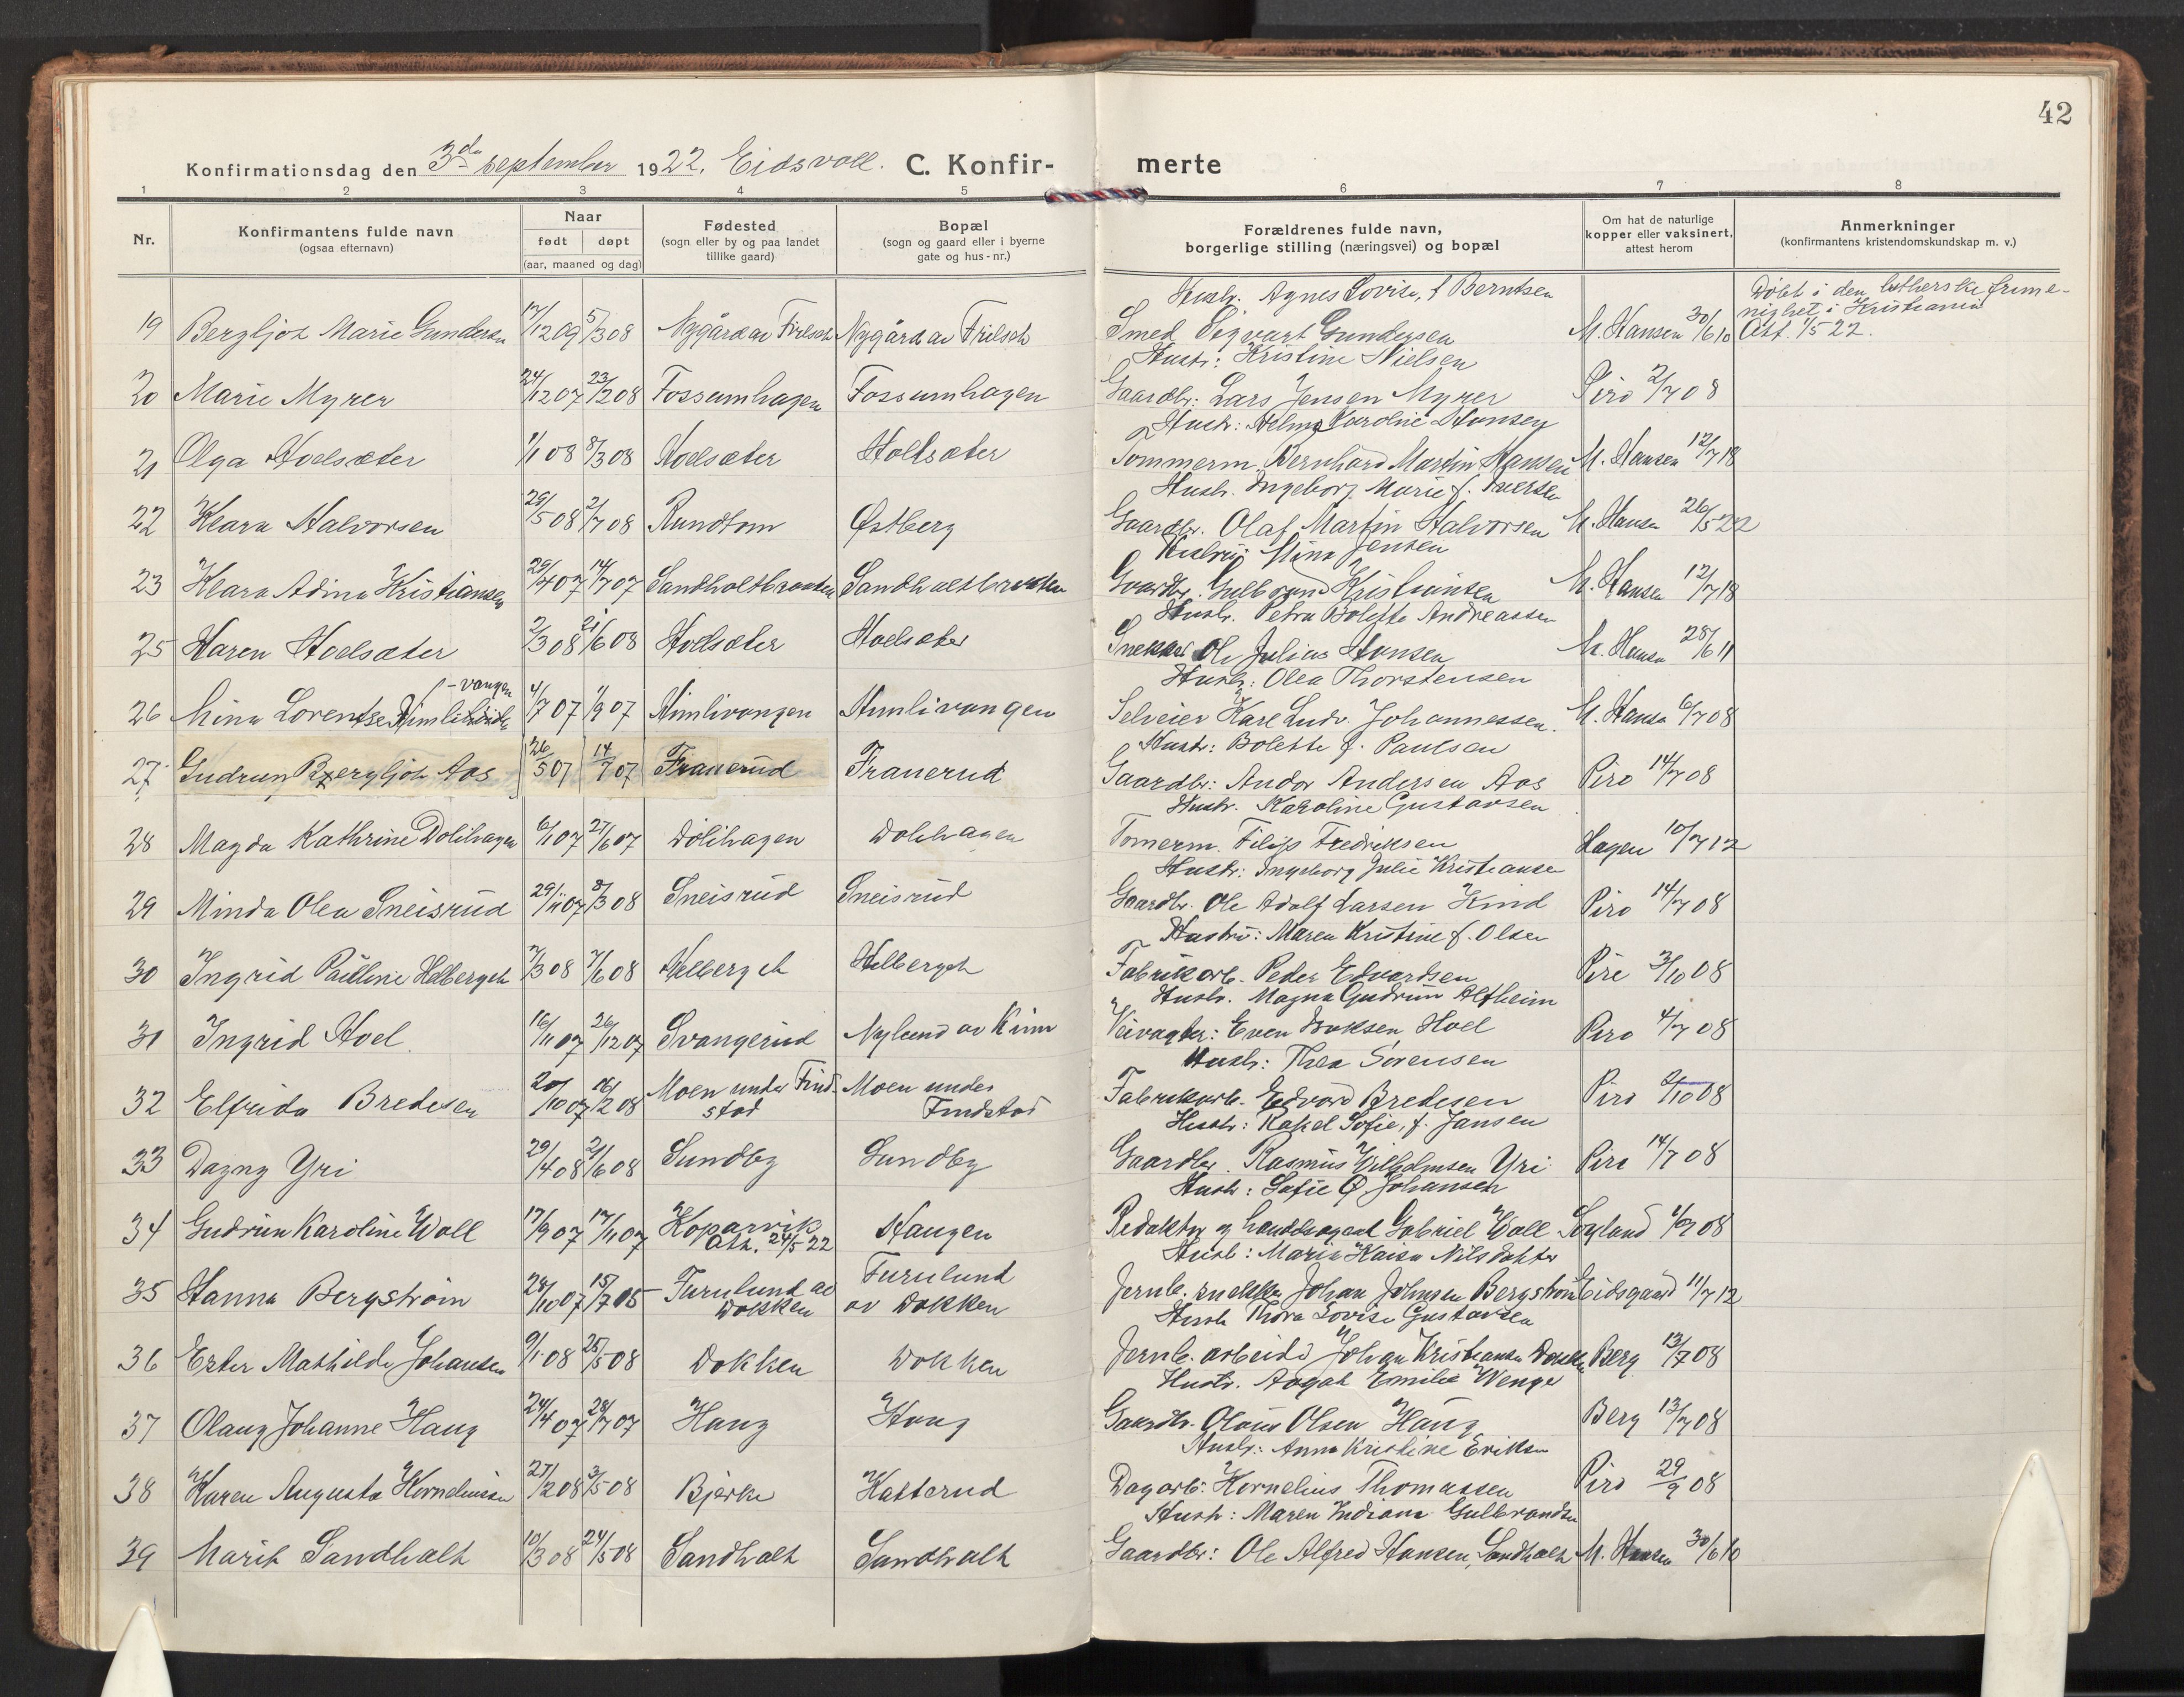 42
Konfirmationsdag den 3die september 1922. Eidsvoll. C. Konfir- merte
1 2 3 4 5 6 7 8
Nr.
Konfirmantens fulde navn
(ogsaa efternavn)
Naar
født døpt
(aar, maaned og dag)
Fødested
(sogn eller by og paa landet
tillike gaard)
Bopæl
(sogn og gaard eller i byerne
gate og hus-nr.)
Forældrenes fulde navn,
borgerlige stilling (næringsvei) og bopæl
Om hat de naturlige
kopper eller vaksinert,
attest herom
Anmerkninger
(konfirmantens kristendomskundskap m. v.)
Hustr. Agnes Lovise, f Berntsen
Døbt i den lutherske frime-
nighet i Kristiania
19 Bergljot Marie Gundersen 5/3 08 Nygård av Frilset Nygård av Frilset Smed Sigvart Gundersen M. Hansen 30/6 10 Att. 1/5 22.
Hustr: Kristine Nielsen
20 Marie Myrer 24/12 07 23/2 08 Fossumhagen Fossumhagen Gaardbr: Lars Jensen Myrer Piro 2/7 08
Hustr: Helma Karoline Hansen
21 Olga Hoelsæter 1/1 08 8/3 08 Hoelsæter Holtsæter Tømmerm. Bernhard Martin Hansen M. Hansen 12/7 18
Hustr. Ingeborg Marie f. Iversen
22 Klara Halvorsen 29/5 08 2/7 08 Rundtom Østberg Gaardbr. Olaf Martin Halvorsen M. Hansen 26/5 22
Hustru Mina Jensen
23 Klara Adina Kristiansen 29/4 07 14/7 07 Sandholtbraaten Sandholtbraaten Gaardbr. Gulbrand Kristiansen M. Hansen 12/7 18
Hustr. Petra Bolette Andreassen
25 Karen Hoelsæter 2/3 08 21/6 08 Hoelsæter Hoelsæter Snekker Ole Julius Hansen M. Hansen 28/6 11
Hustr: Olea Thorstensen
-vangen
26 Mina Lorentse 4/7 07 1/9 07 Himlivangen Himlivangen Selveier Karl Ludv. Johannessen. M. Hansen 6/7 08
Hustr: Bolette f. Paulsen
27 Gudrun Bergljot Aos 26/5 07 14/7 07 Franerud Franerud Gaardbr: Andor Andersen Aos Piro 14/7 08
Hustr. Karoline Gustavsen
28 Magda Kathrine Dølihagen 6/1 07 27/6 07 Dølihagen Dølihagen Tømerm. Filip Fredriksen Hagen 10/7 12
Hustr: Ingeborg Julie Kristiansen
29 Minda Olea Sneisrud 29/11 07 8/3 08 Sneisrud Sneisrud Gaardbr. Ole Adolf Larsen Kind Piro 14/7 08
Hustru: Maren Kristine f. Olsen
30 Ingrid Pauline Helberget 7/3 08 7/6 08 Helberget Helberget Fabrikarb. Peder Edvardsen Piro 3/10 08
Hustr. Magna Gudrun Altheim
31 Ingrid Hoel 16/11 07 26/12 07 Svangerud Nylund av Kinn Veivagter: Even Isaksen Hoel Piro 4/7 08
Hustr: Thea Sørensen
32 Elfrida Bredesen 20/10 07 16/2 08 Moen under Find-
stad Moen under
Findstad Fabrikarb. Edvard Bredesen Piro 2/10 08
Hustr: Rakel Sofie, f. Jansen
33 Dagny Yri 29/4 08 21/6 08 Sundby Sundby Gaardbr. Rasmus Vilhelmsen Yri Piro 14/7 08
Hustr: Sofie Ø Johansen
34 Gudrun Karoline Woll 17/9 07 17/11 07 Kopervik
Att. 24/5 22 Haugen Redaktør og Gabriel Woll 08
Hustr: Maria Kaisa Nilsdotter
35 Hanna Bergstrøm 28/10 07 15/7 08 Furulund av
Dokken Furulund
av Dokken Jernb. snekker Johan Johnsen Bergstrøm Eidsgaard 11/7 12
Hustr Thora Lovise Gustavsen
36 Ester Mathilde Johansen 9/1 08 25/5 08 Dokken Dokken Jernb. arbeider Johan Kristiansen Dokken Berg 13/7 08
Hustr. Aagot Emilie Wenger
37 Olaug Johanne Haug 24/4 07 28/7 07 Haug Haug Gaardbr. Olaus Olsen Haug Berg 13/7 08
Hustr: Anna Kristine Eriksen
38 Karen Augusta Korneliussen 27/2 08 3/5 08 Bjerke Katterud Dagarb: Kornelius Thomassen Piro 29/9 08
Hustr: Maren Indiana Gulbrandsen
39 Marit Sandholt 10/3 08 24/5 08 Sandholt Sandholt Gaardbr: Ole Alfred Hansen Sandholt M. Hansen 30/6 10